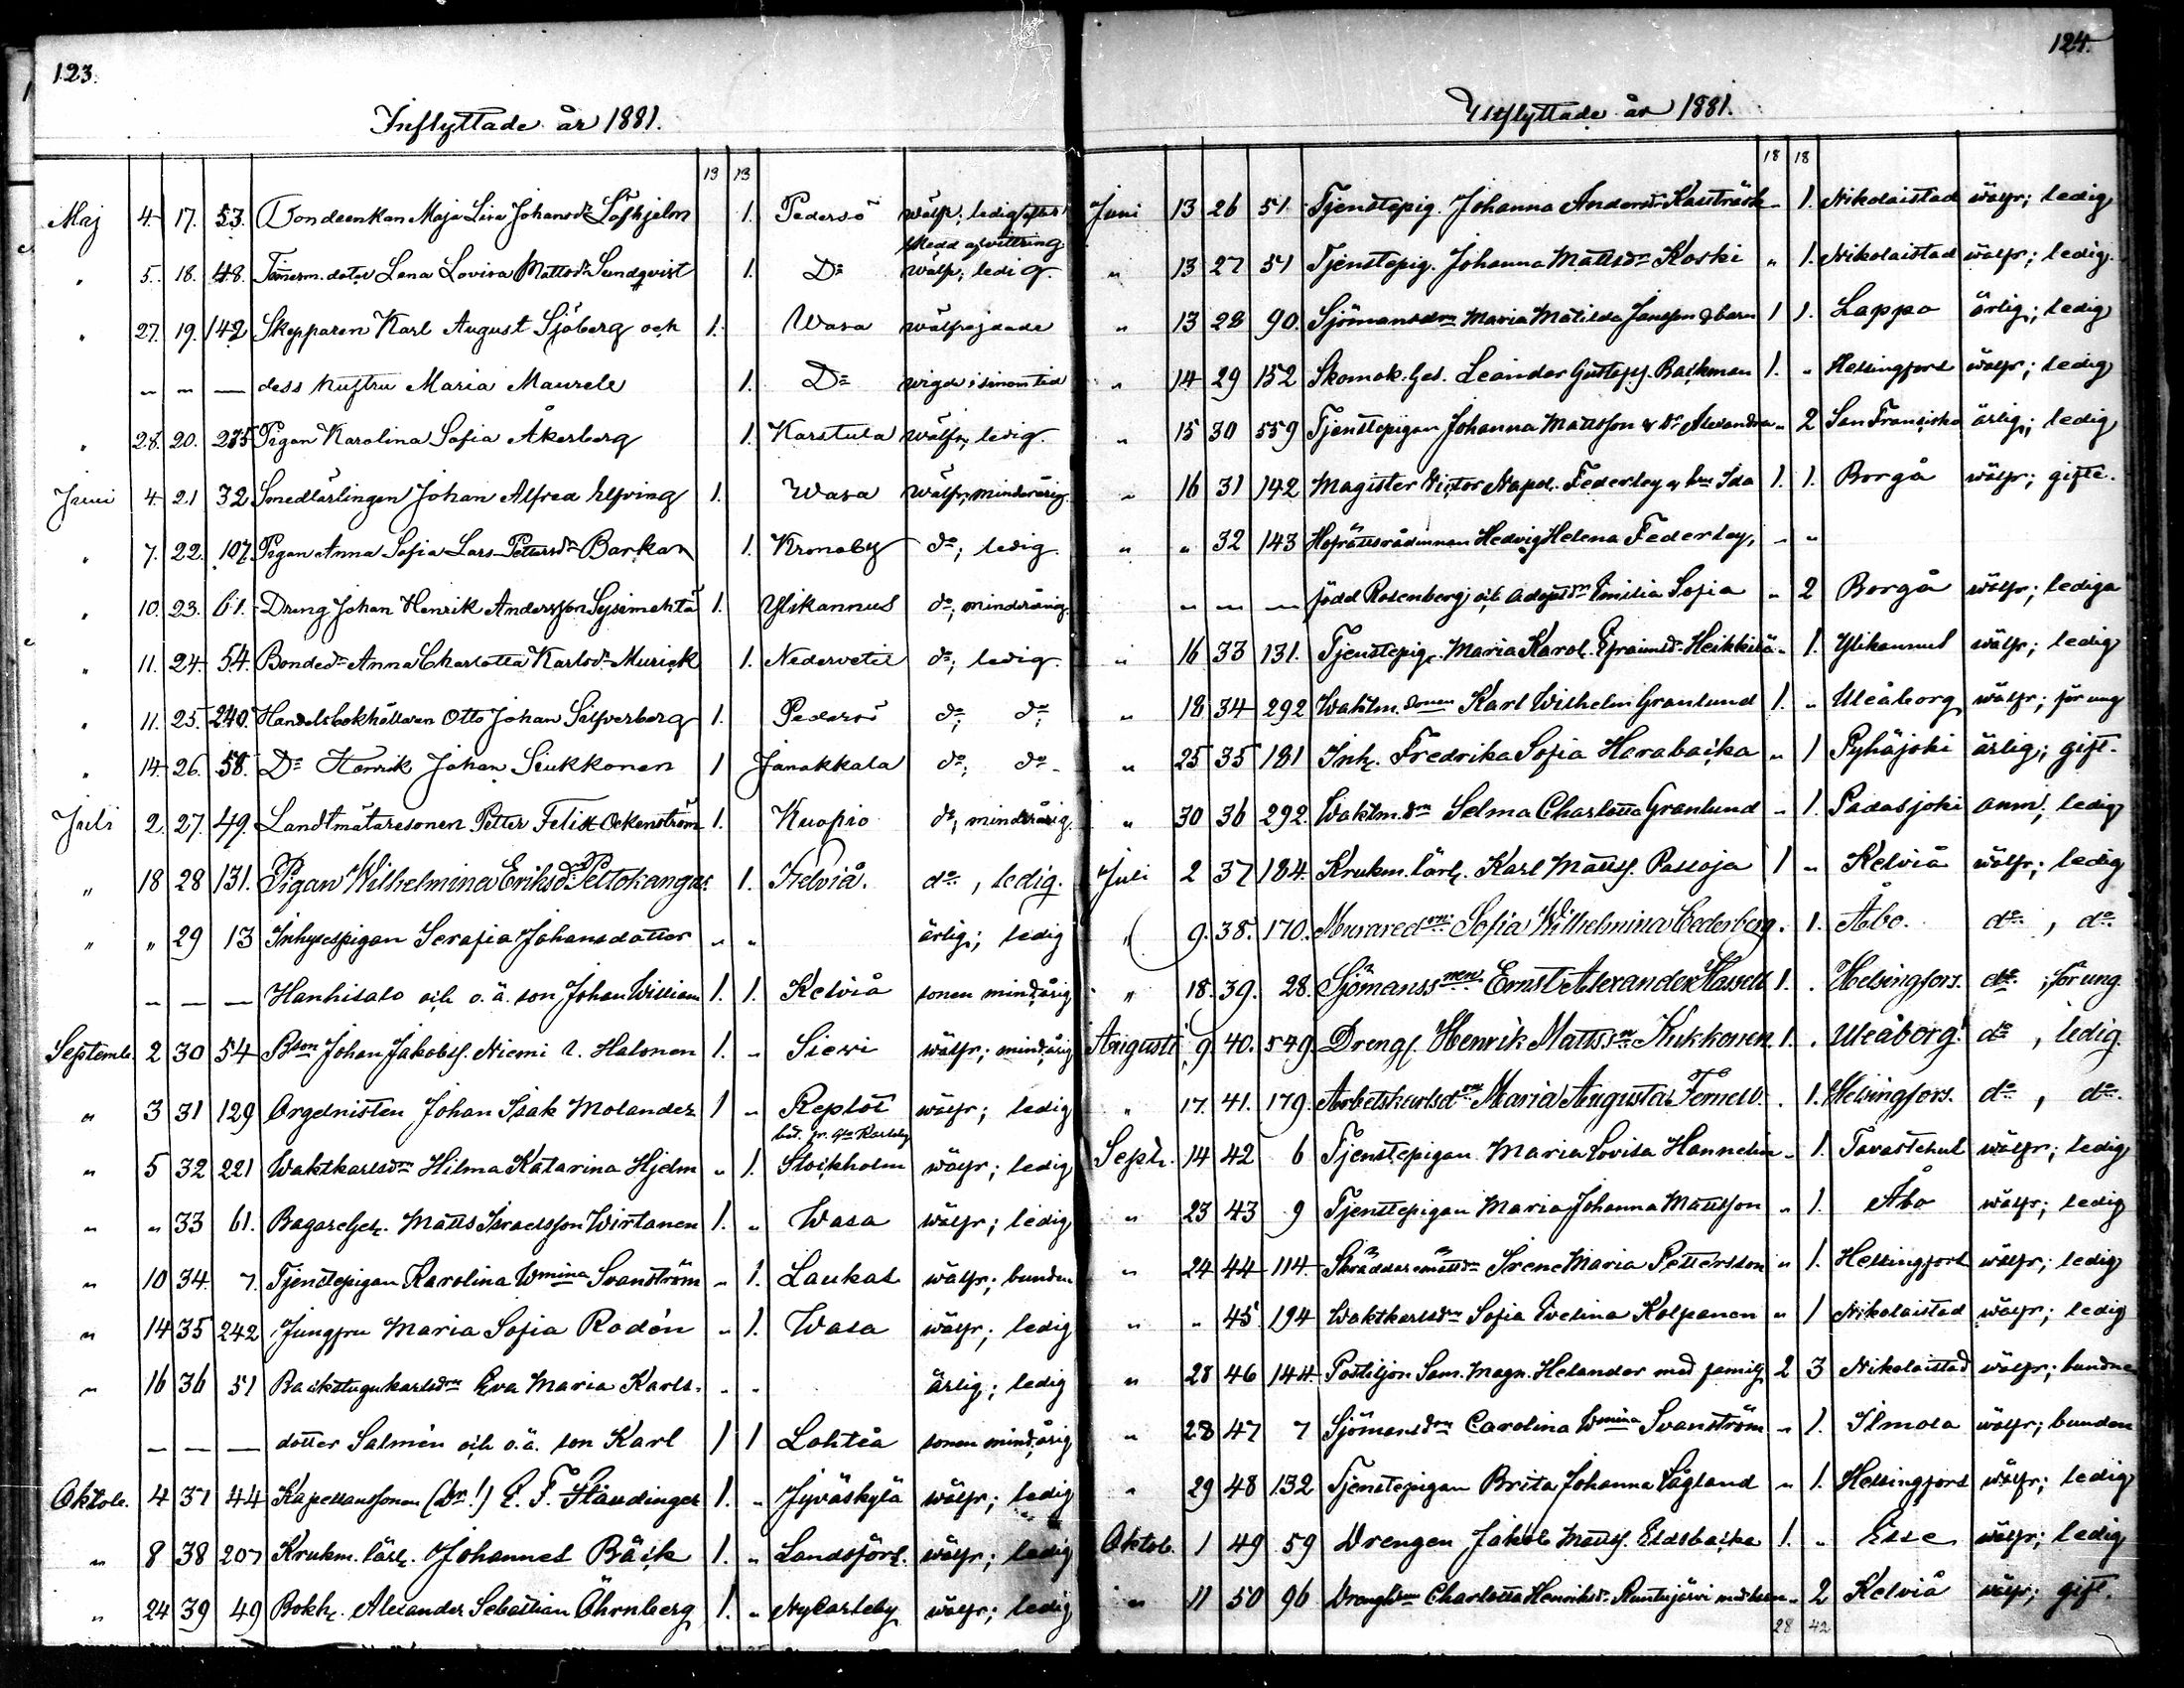 123.
Inflyttade år 1881.
13 13
Maj 4. 17. 53. Bondeenkan Maja Lisa Johansdr Löfhjelm 1. Pedersö wälfr; ledig efter
Medd afvittring
" 5. 18. 48. Timerm. dotar Lena Lovisa Mattsdr Sundqvist 1. Do wälfr; ledig.
" 27. 19. 142 Skepparen Karl August Sjöberg och 1. Wasa wälfrejdade
" " — dess hustru Maria Maurele 1. Do wigde i sinom tid
" 28. 20. 235 Pigan Karolina Sofia Åkerberg 1. Karstula wälfr; ledig.
Juni 4. 21 32 Smedlärlingen Johan Alfred Elfving 1. Wasa wälfr; minderårig.
" 7. 22. 107. Pigan Anna Sofia Lars Pettersdr Barkar 1. Kronoby do; ledig
" 10. 23. 61. Dreng Johan Henrik Andersson Sysimehtä 1. Ylikannus do; minderårig.
" 11. 24. 54. Bondedr Anna Charlotta Karlsdr Murick 1. Nedervetil do; ledig.
" 11. 25. 240. Handelsbokhållaren Otto Johan Silfverberg 1. Pedersö do; do;
" 14. 26. 58. Do Henrik Johan Siukkonen 1 Janakkala do; do
Juli 2 27. 49. Landtmätaresonen Petter Felix Ockenström 1. Kuopio do; minderårig.
" 18 28 131. Pigan Wilhelmina Eriksdr Peltokangas 1. Kelviå. do, ledig.
" " 29 13 Inhysespigan Serafia Johansdotter " " ärlig; ledig
— — — Hanhisalo och o.ä. son Johan William 1. 1. Kelviå sonen mindårig
Septemb. 2 30 54 Bson Johan Jakobss. Niemi l. Halonen 1. " Siewi wälfr; mindårig
" 3 31 129 Orgelnisten Johan Isak Molander 1 " Replot wälfr; ledig
bet. fr. Gla Karleby
" 5 32 221 Waktkarlsdn Hilma Katarina Hjelm " 1. Stockholm wälfr; ledig
" " 33 61. Bagareges. Matts Israelsson Wirtanen 1. " Wasa wälfr; ledig
" 10 34. 7. Tjenstepigan Karolina Wmina Svanström " 1. Laukas wälfr; bunden
" 14 35 242 Jungfru Maria Sofia Rodén " 1. Wasa wälfr; ledig
" 16 36 51 Backstugukarlsdn Eva Maria Karls- " " ärlig; ledig
— — — dotter Salmén och o.ä. son Karl 1 1 Lohteå sonen mindårig
Oktob. 4 37 44 Kapellanssonen (Dr!) E. F. Staudinger 1. " Jyväskylä wälfr; ledig
" 8 38 207 Krukm. lärl. Johannes Bäck 1. " Landsförs. wälfr; ledig
" 24 39 49 Bokh. Alexander Sebastian Öhrnberg 1. " NyCarleby wälfr; ledig
124.
Utflyttade år 1881.
18 18
Juni 13 26 51. Tjenstepig. Johanna Andersdr Kausträsk " 1. Nikolaistad wälfr; ledig
" 13 27 51 Tjenstepig. Johanna Mattsdr Koski " 1. Nikolaistad wälfr; ledig.
" 13 28 90. Sjömansdn Maria Matilda Jansson & barn 1 1. Lappo ärlig; ledig
" 14 29 152 Skomak. Ges. Leander Gustafs. Backman 1. " Helsingfors wälfr; ledig
" 15 30 559 Tjenstepigan Johanna Mattsson & dr Alexandra " 2 San Francisko ärlig; ledig
" 16 31 142 Magister Victor Napol. Federley & hu Ida 1. 1. Borgå wälfr; gifte.
" " 32 143 Hofrättsrådinnan Hedvig Helena Federley, " "
" " — född Rosenberg; och Adoptdr Emilia Sofia " 2 Borgå wälfr; lediga
" 16 33 131. Tjenstepig. Maria Karol. Efraimsdr Heikkilä " 1. Ylikannus wälfr; ledig
" 18 34 292 Waktm. sonen Karl Wilhelm Granlund 1. " Uleåborg wälfr; för ung
" 25 35 181 Inh. Fredrika Sofia Harabacka " 1 Pyhäjoki ärlig; gift.
" 30 36 292. Waktm. dn Selma Charlotta Granlund " 1. Padasjoki anm. ledig
Juli 2 37 184. Krukm. lärl. Karl Mattss. Passoja 1 " Kelviå wälfr; ledig
" 9. 38. 170. Muraredn Sofia Wilhelmina Cederberg. . 1. Åbo. do, do.
" 18. 39. 28. Sjömanssnen Ernst Alexander Hassell 1. . Helsingfors. do; för ung.
Augusti 9. 40. 549. Drengs. Henrik Mattssn Kukkonen 1. . Uleåborg. do, ledig.
" 17. 41. 179. Arbetskarlsdn Maria Augusta Fernell. . 1. Helsingfors. do, do.
Septr. 14 42 6 Tjenstepigan Maria Lovisa Hannelin " 1. Tavastehus wälfr; ledig
" 23 43 9 Tjenstepigan Maria Johanna Mattsson " 1. Åbo wälfr; ledig
" 24 44 114. Skräddaremästdn Irene Maria Pettersson " 1. Helsingfors wälfr; ledig
" " 45. 194 Waktkarlsdn Sofia Evelina Kolpanen " 1 Nikolaistad wälfr; ledig
" 28 46 144. Postiljon Sam. Magn. Helander med familj 2 3 Nikolaistad wälfr; bundne
" 28 47 7 Sjömansdn Carolina Wmina Svanström " 1. Ilmola wälfr; bunden
" 29 48 132 Tjenstepigan Brita Johanna Lågland " 1. Helsingfors wälfr; ledig
Oktob. 1 49 59 Drengen Jakob Mattss. Eldsbacka 1. " Esse wälfr; ledig
" 11 50 96 Drengkan Charlotta Henriksdr Runtujärvi med barn " 2 Kelviå wälfr; gift.
28 42